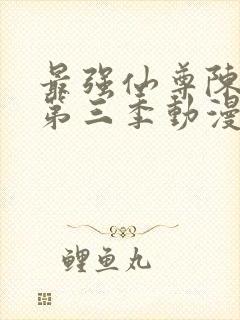 最强仙尊陈
第三季動漫
鲤鱼丸